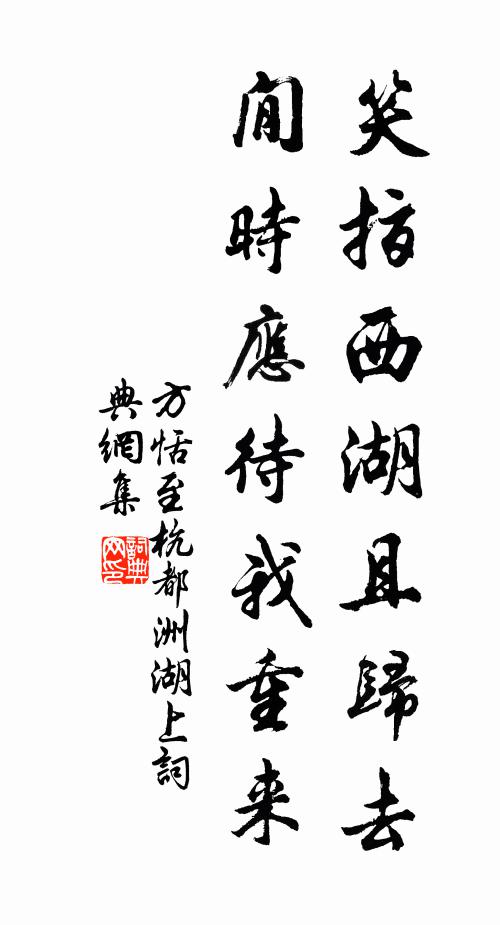 笑指西湖且歸去
閒時應待我重来
方恬至杭都洲湖上詞
典網集
詞典
网印